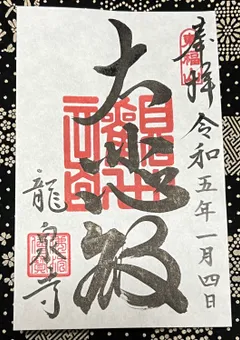 奉拝
令和五年一月四日
大悲殿
龍泉寺